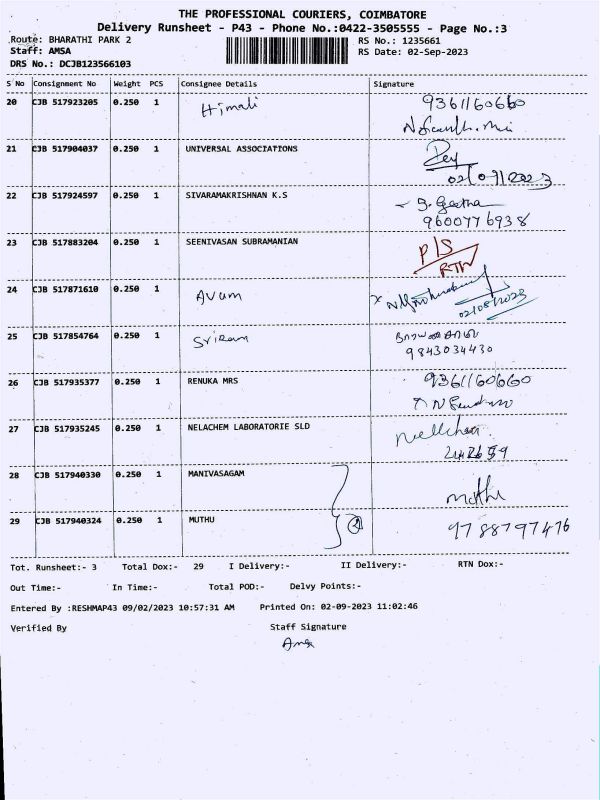 THE PROFESSIONAL COURIERS, COIMBATORE
Delivery Runsheet - P43 - Phone No.:0422-3505555 - Page No.:3
Route: BHARATHI PARK 2 RS No.: 1235661
Staff: AMSA RS Date: 02-Sep-2023
DRS No.: DCJB123566103
S No Consignment No Weight PCS Consignee Details Signature
20 CJB 517923205 0.250 1 Himali 9361160660
21 CJB 517904037 0.250 1 UNIVERSAL ASSOCIATIONS
02/09/2023
22 CJB 517924597 0.250 1 SIVARAMAKRISHNAN K.S S. Geetha
9600776938
23 CJB 517883204 0.250 1 SEENIVASAN SUBRAMANIAN P/S
RTN
24 CJB 517871610 0.250 1 Avum
02/08/2023
25 CJB 517854764 0.250 1 Sriram நாராயணசாமி
9843034430
26 CJB 517935377 0.250 1 RENUKA MRS 9361160660
27 CJB 517935245 0.250 1 NELACHEM LABORATORIE SLD Nellchem
2442659
28 CJB 517940330 0.250 1 MANIVASAGAM Muthu
29 CJB 517940324 0.250 1 MUTHU 2 9788797476
Tot. Runsheet:- 3 Total Dox:- 29 I Delivery:- II Delivery:- RTN Dox:-
Out Time:- In Time:- Total POD:- Delvy Points:-
Entered By :RESHMAP43 09/02/2023 10:57:31 AM Printed On: 02-09-2023 11:02:46
Verified By Staff Signature
Amsa